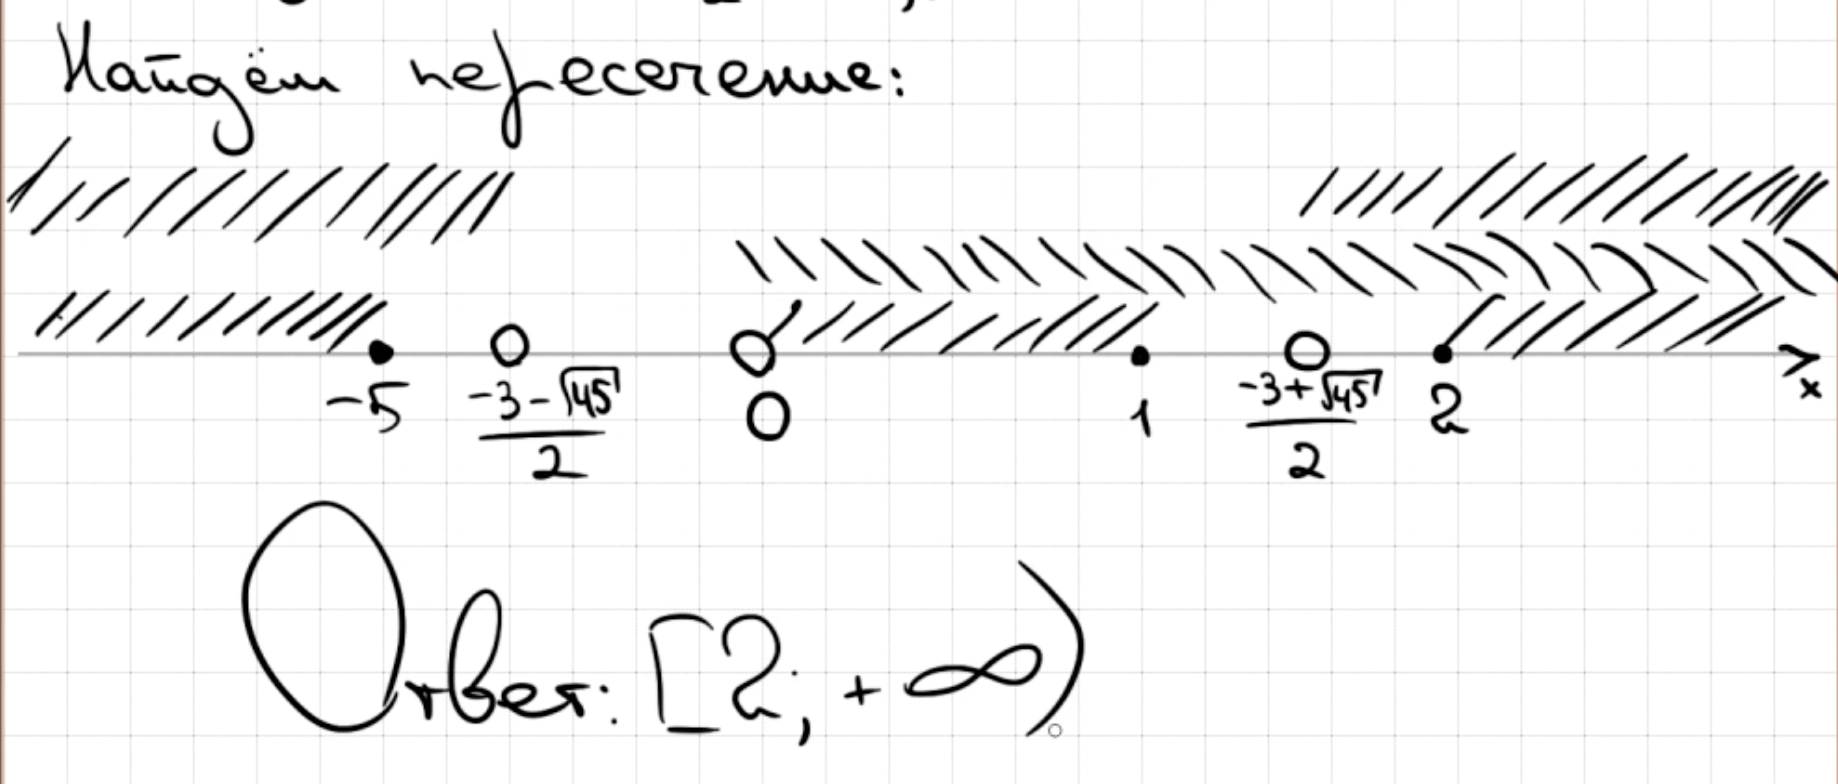 Найдём пересечение:
-5 (-3-√45)/2 0 1 (-3+√45)/2 2 x
Ответ: [2; +∞)